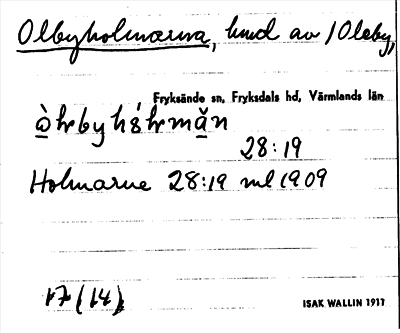 Olbyholmarna, hmd av /Oleby,
Fryksände sn, Fryksdals hd, Värmlands län
28:19
Holmarne 28:19 ml 1909
17(14)
ISAK WALLIN 1917